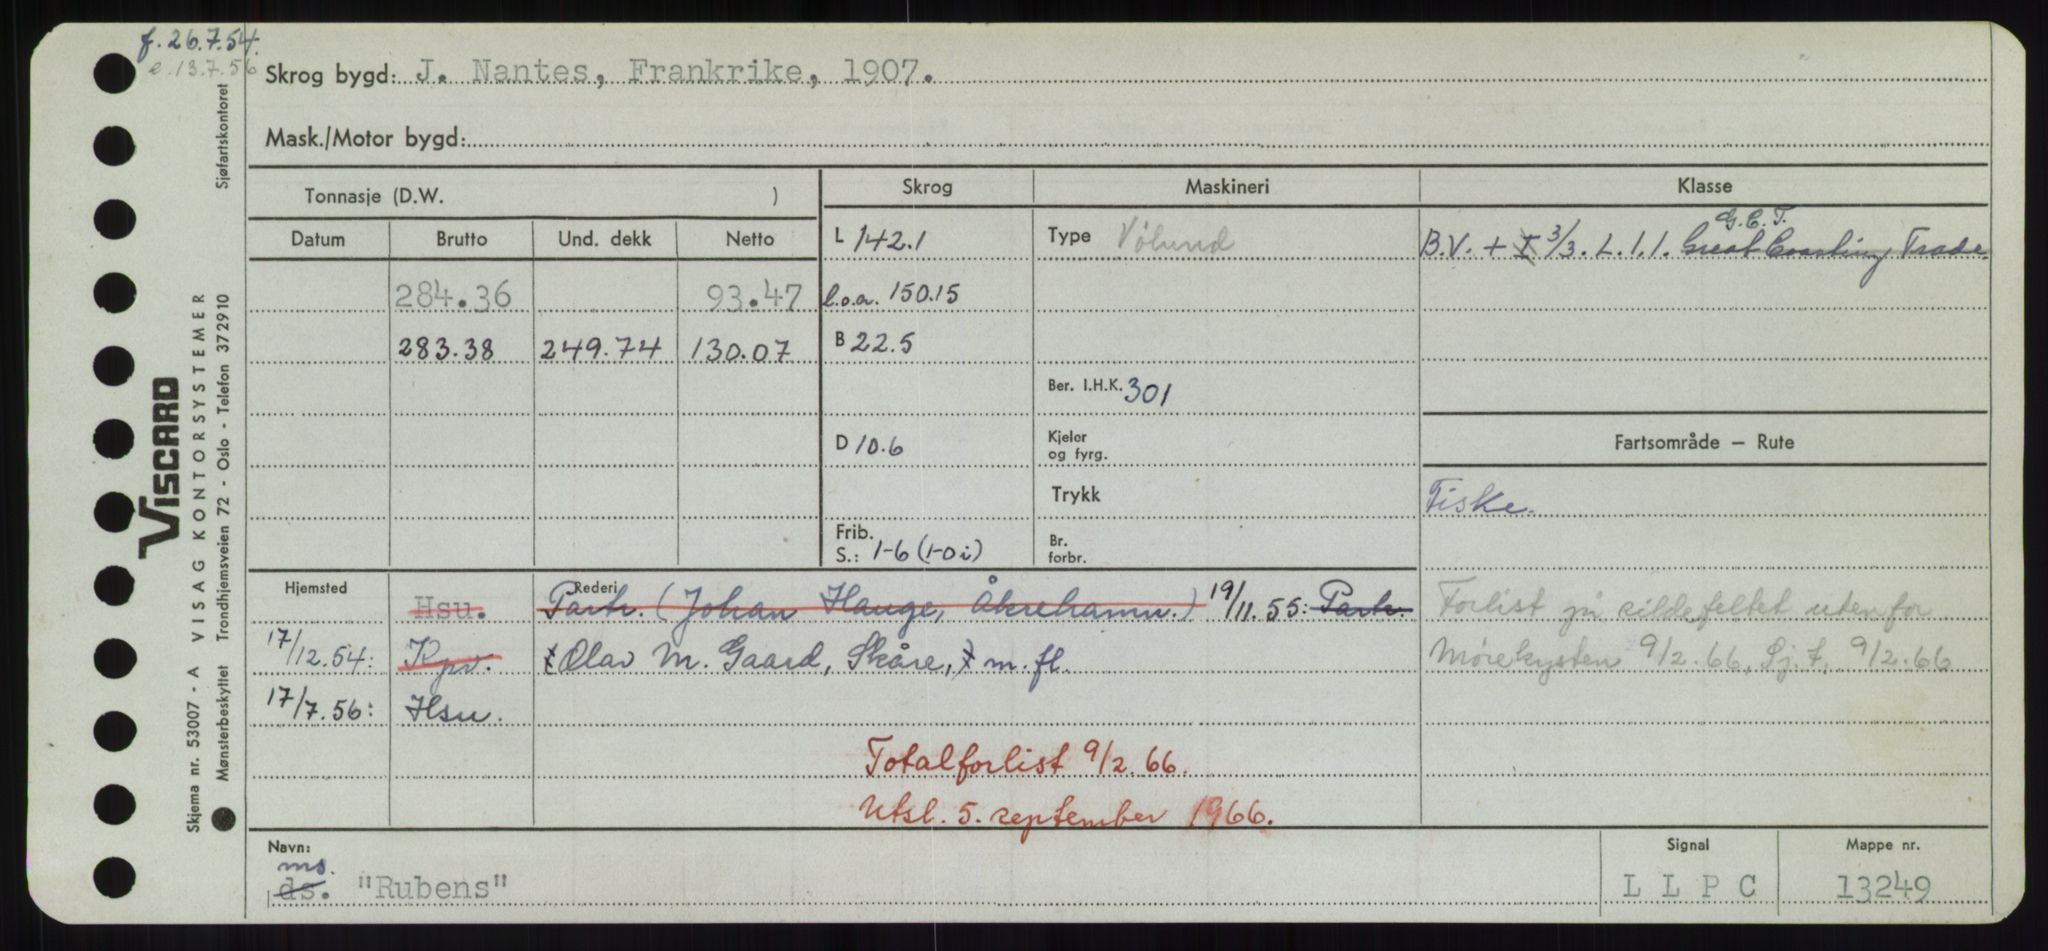 f. 26.7.54.
e. 13.7.56
Skrog bygd: J. Nantes, Frankrike, 1907.
Mask./Motor bygd:
Tonnasje (D.W. )
Skrog
Maskineri
Klasse
Datum Brutto Und. dekk Netto
L 142.1
Type Vølund
G.C.T.
B.V. + I 3/3. L.1.1. Great Coasting Trade
284.36 93.47
l.o.a. 150.15
283.38 249.74 130.07
B 22.5
Ber. I.H.K. 301
D 10.6
Kjeler
og fyrg.
Fartsområde – Rute
Trykk
Fiske.
Frib.
S.: 1-6 (1-0i)
Br.
forbr.
Hjemsted
Rederi
Hsu. Partr. (Johan Hauge, Åkrehamn.) 19/11.55: Partr.
Forlist på sildefeltet utenfor
17/12.54: Kpv. Olav M. Gaard, Skåre, m. fl.
Mørekysten 9/2.66, Sj.f. 9/2.66
17/7.56: Hsu.
Totalforlist 9/2.66.
Utsl. 5. september 1966.
Navn:
ms.
ds. "Rubens"
Signal
L L P C
Mappe nr.
13249
Skjema nr. 53007 - A VISAG KONTORSYSTEMER
VISCARD
Mønsterbeskyttet Trondhjemsveien 72 - Oslo - Telefon 372910 Sjøfartskontoret